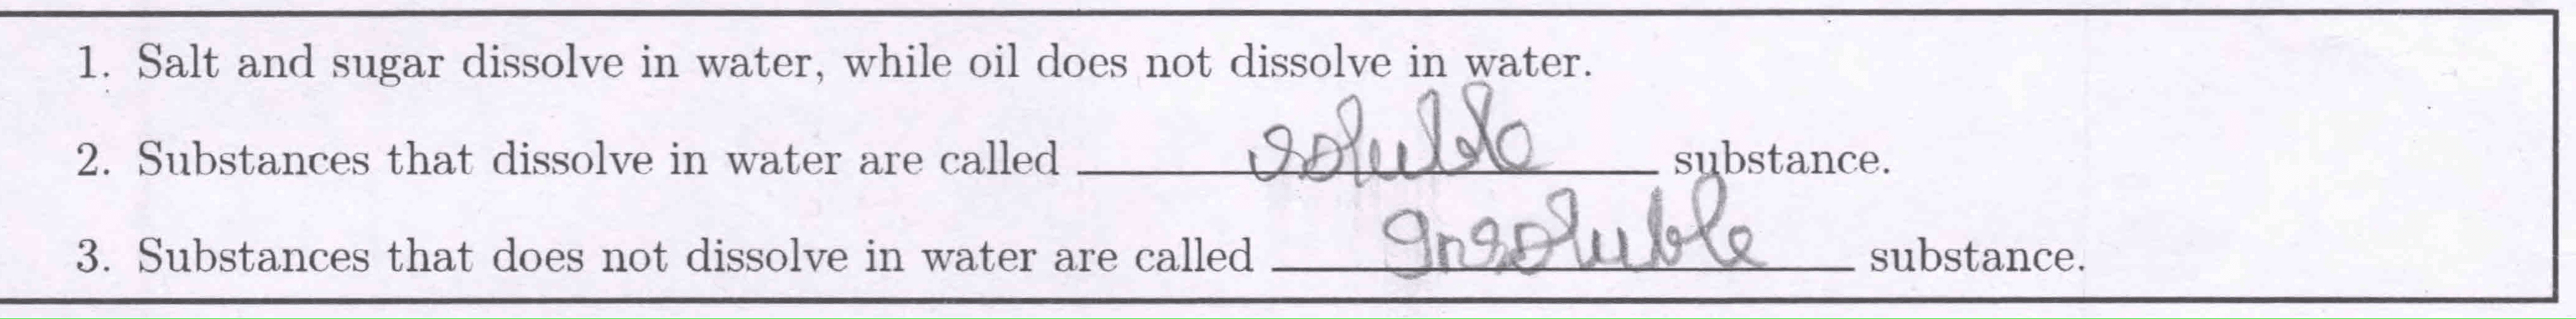 1. Salt and sugar dissolve in water, while oil does not dissolve in water.
2. Substances that dissolve in water are called soluble substance.
3. Substances that does not dissolve in water are called Insoluble substance.